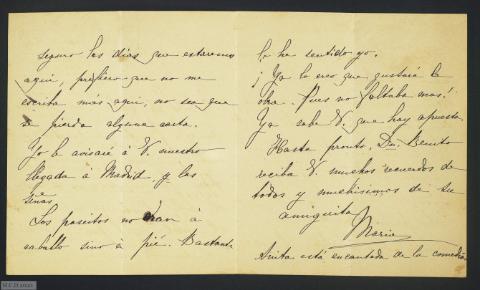 seguro los dias que estaremos
aqui, prefiero que no me
escriba más aqui, no sea que
se pierda alguna carta.
Yo le avisaré á V. nuestra
llegada á Madrid, y las
señas
Los paseitos no eran á
caballo sino á pié. Bastante
lo he sentido yo.
¡Ya lo creo que gustará la
obra. Pues no faltaba mas!
Ya sabe V. que hay apuesta
Hasta pronto, Dn. Benito
reciba V. muchos recuerdos de
todos y muchisimos de su
amiguita
Maria
Anita está encantada de la comedia